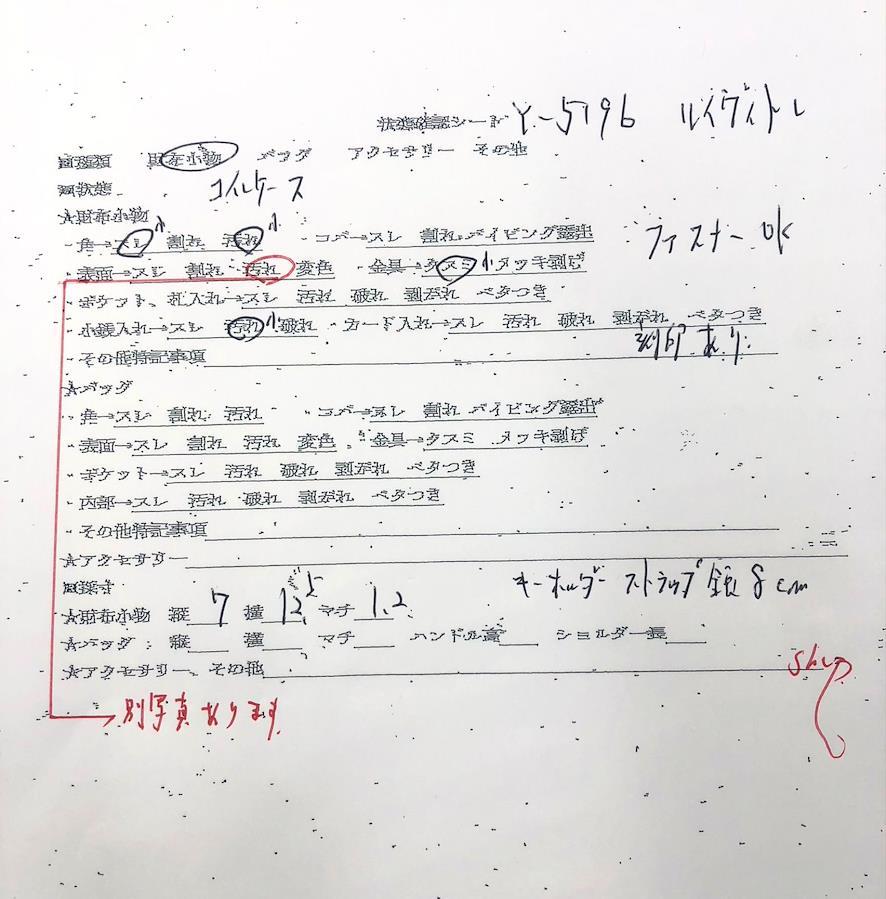 状態確認シート Y-5796 ルイヴィトン
■種類 財布小物 バッグ アクセサリー その他
■状態 コインケース
★財布小物
・角→スレ 小 割れ 汚れ 小 ・コバ→スレ 割れ パイピング露出 ファスナー OK
・表面→スレ 割れ 汚れ 変色 ・金具→クスミ 小 メッキ剥げ
・ポケット、札入れ→スレ 汚れ 破れ 剥がれ ベタつき
・小銭入れ→スレ 汚れ 小 破れ ・カード入れ→スレ 汚れ 破れ 剥がれ ベタつき
・その他特記事項 刻印 あり
★バッグ
・角→スレ 割れ 汚れ ・コバ→スレ 割れ パイピング露出
・表面→スレ 割れ 汚れ 変色 ・金具→クスミ メッキ剥げ
・ポケット→スレ 汚れ 破れ 剥がれ ベタつき
・内部→スレ 汚れ 破れ 剥がれ ベタつき
・その他特記事項
★アクセサリー
■採寸 キーホルダー ストラップ 8cm
★財布小物 縦 7 横 12.5 マチ 1.2
★バッグ 縦 横 マチ ハンドル高 ショルダー長
★アクセサリー、その他
別写真あります